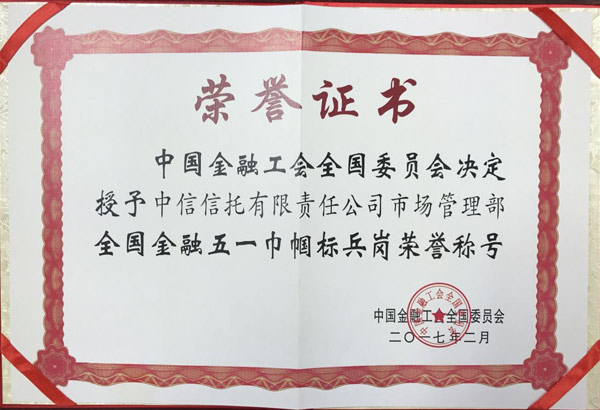 荣誉证书
中国金融工会全国委员会决定
授予中信信托有限责任公司市场管理部
全国金融五一巾帼标兵岗荣誉称号
中国金融工会全国委员会
二〇一七年二月